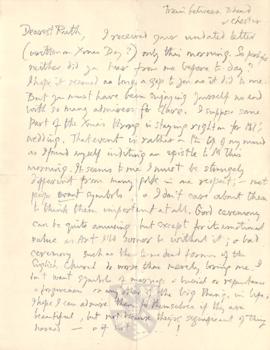 Train between Island
& Chester
Dearest Ruth, I received your undated letter
(written on Xmas Day?) only this morning. So perhaps
neither did you hear from me before to day?
I hope it seemed as long a gap to you as it did to me.
But you must have been enjoying yourself no end
with so many admirers for Clare. I suppose some
part of the Xmas throng is staying right on for M's
wedding. That event is rather on the tip of my mind
as I found myself inditing an epistle to M this
morning. It seems to me I must be strangely
different from many folk in one respect; – most
people want symbols & I don't care about them
to think them important at all. Good ceremony
can be quite amusing but except for its emotional
value as Art I'd sooner be without it; & a bad
ceremony such as the
English Church do more than merely bore me. I
don't want symbols of marriage or burial or repentance
or forgiveness or any other of the big things, in life.
I hope I can admire them for themselves if they are
beautiful, but not because their significance of they
– of not